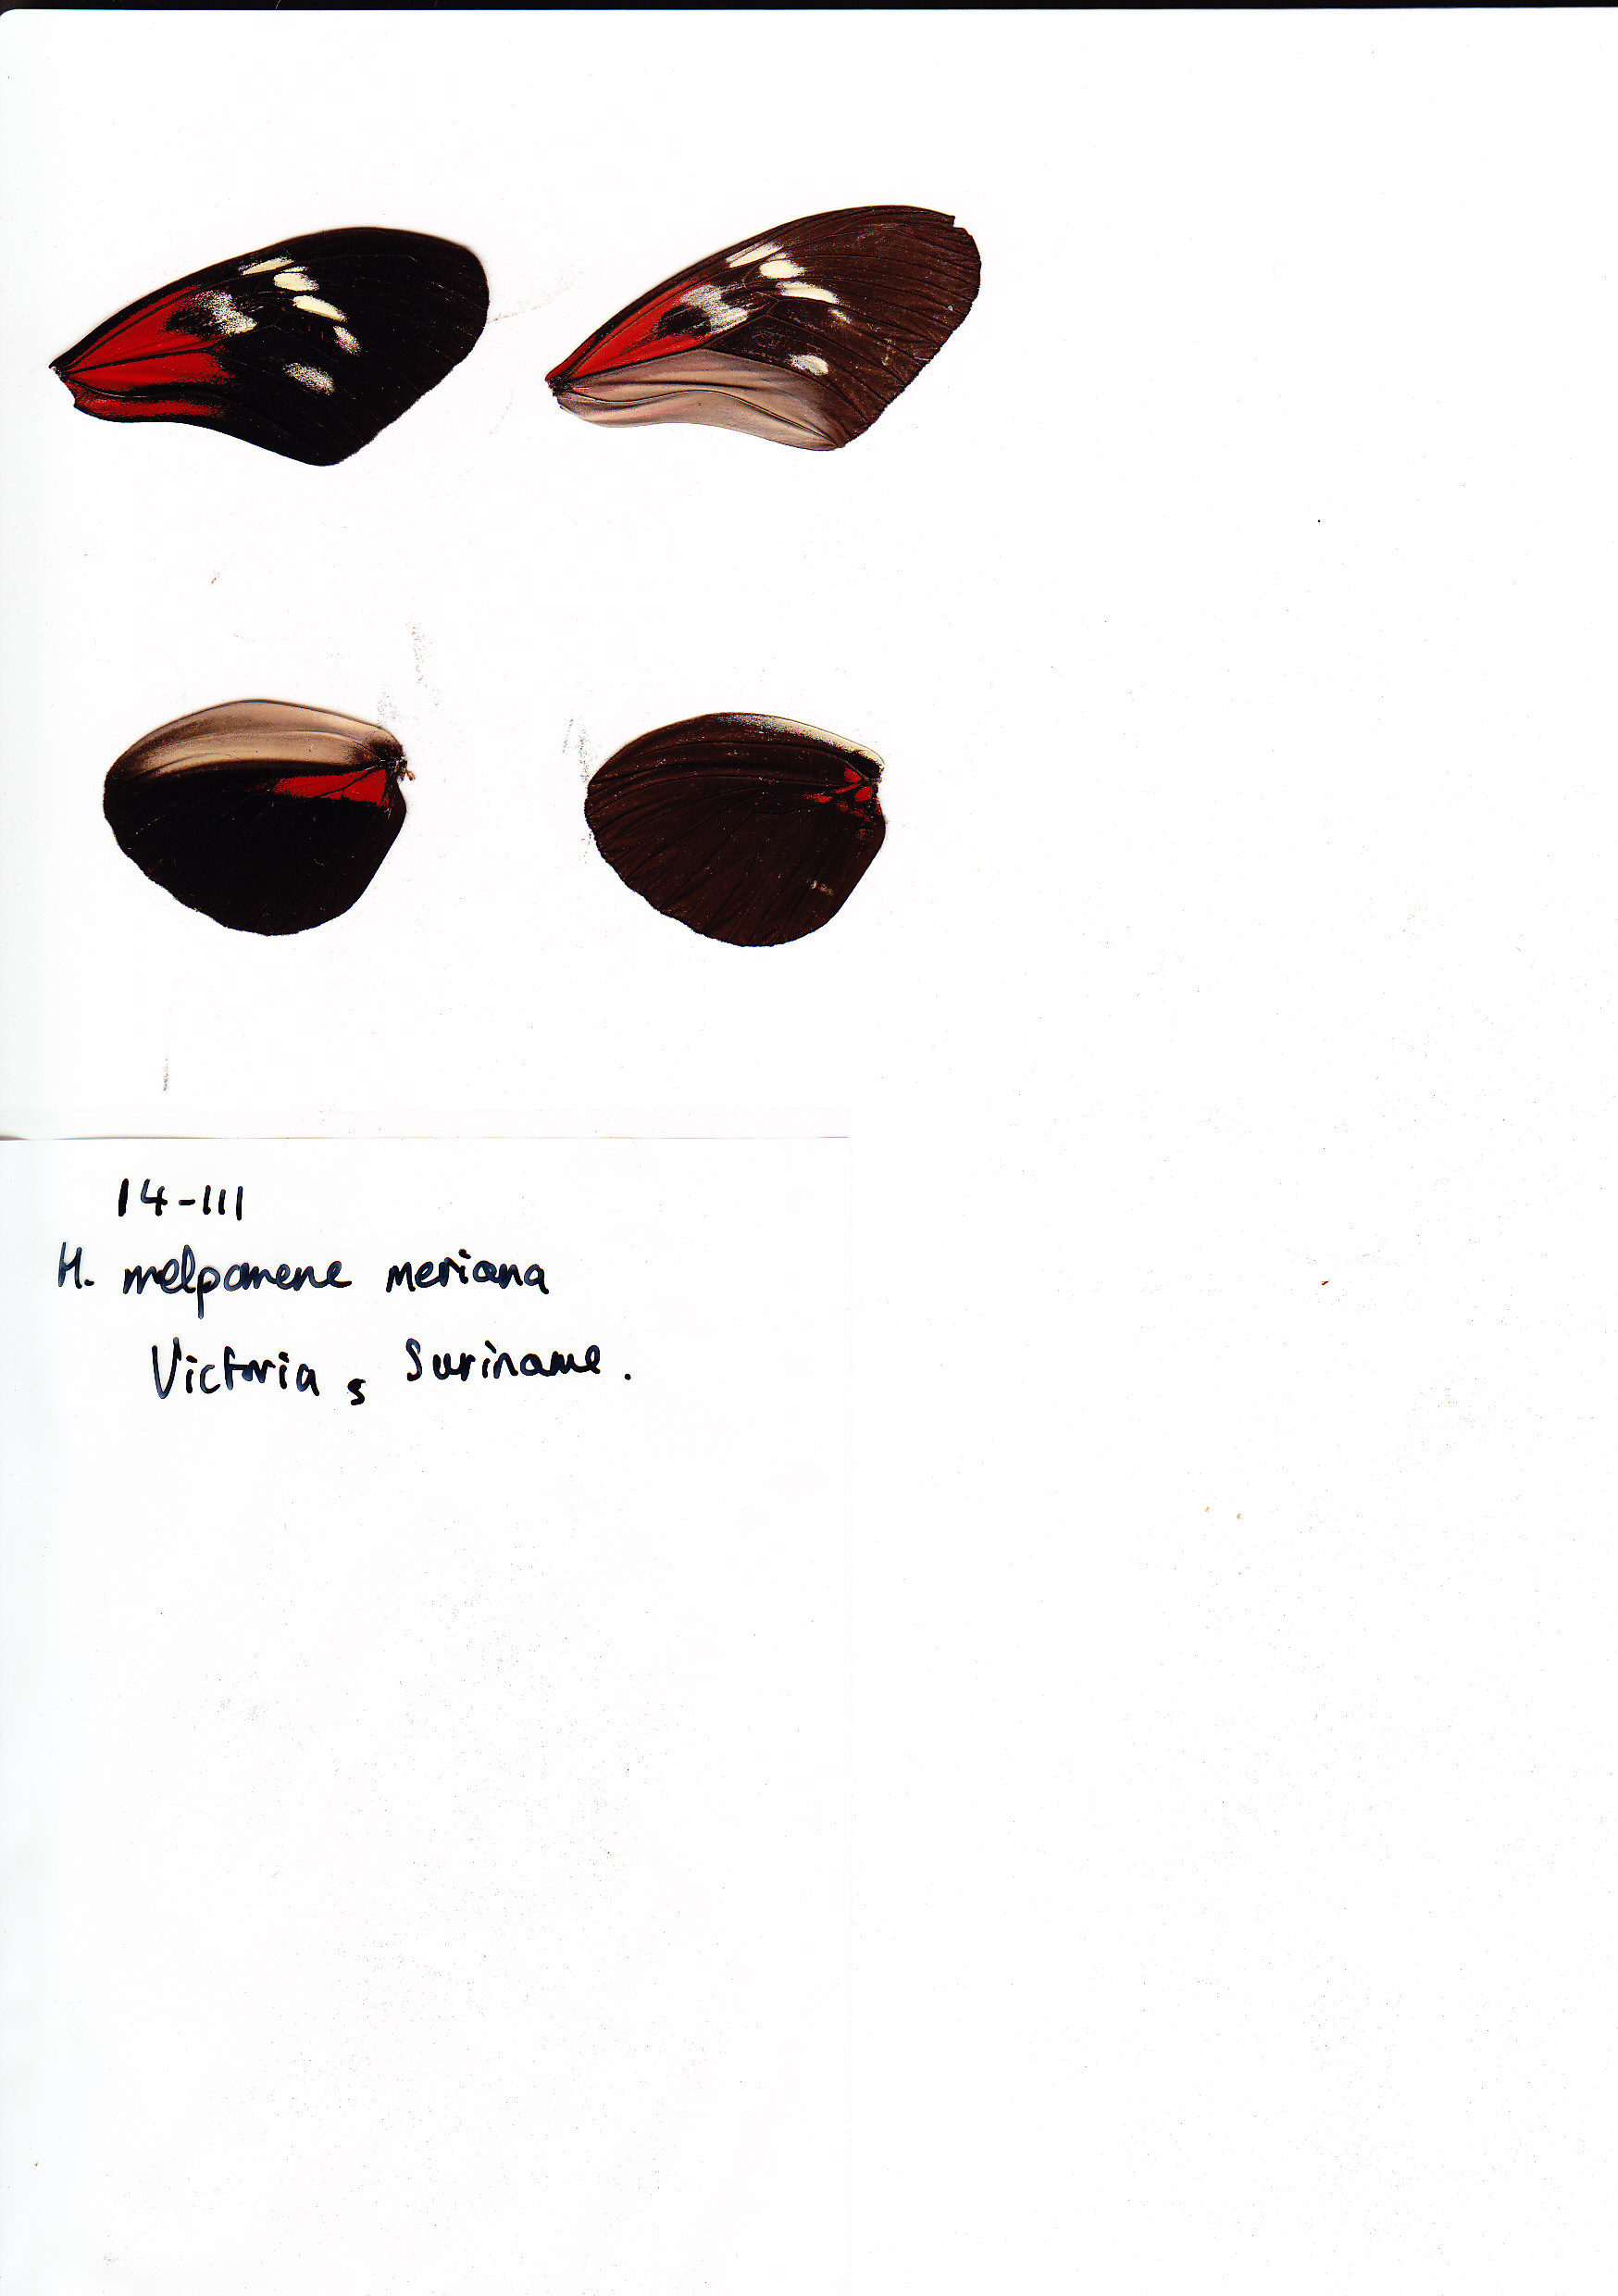 14-111
H. melpomene meriana
Victoria, Suriname.